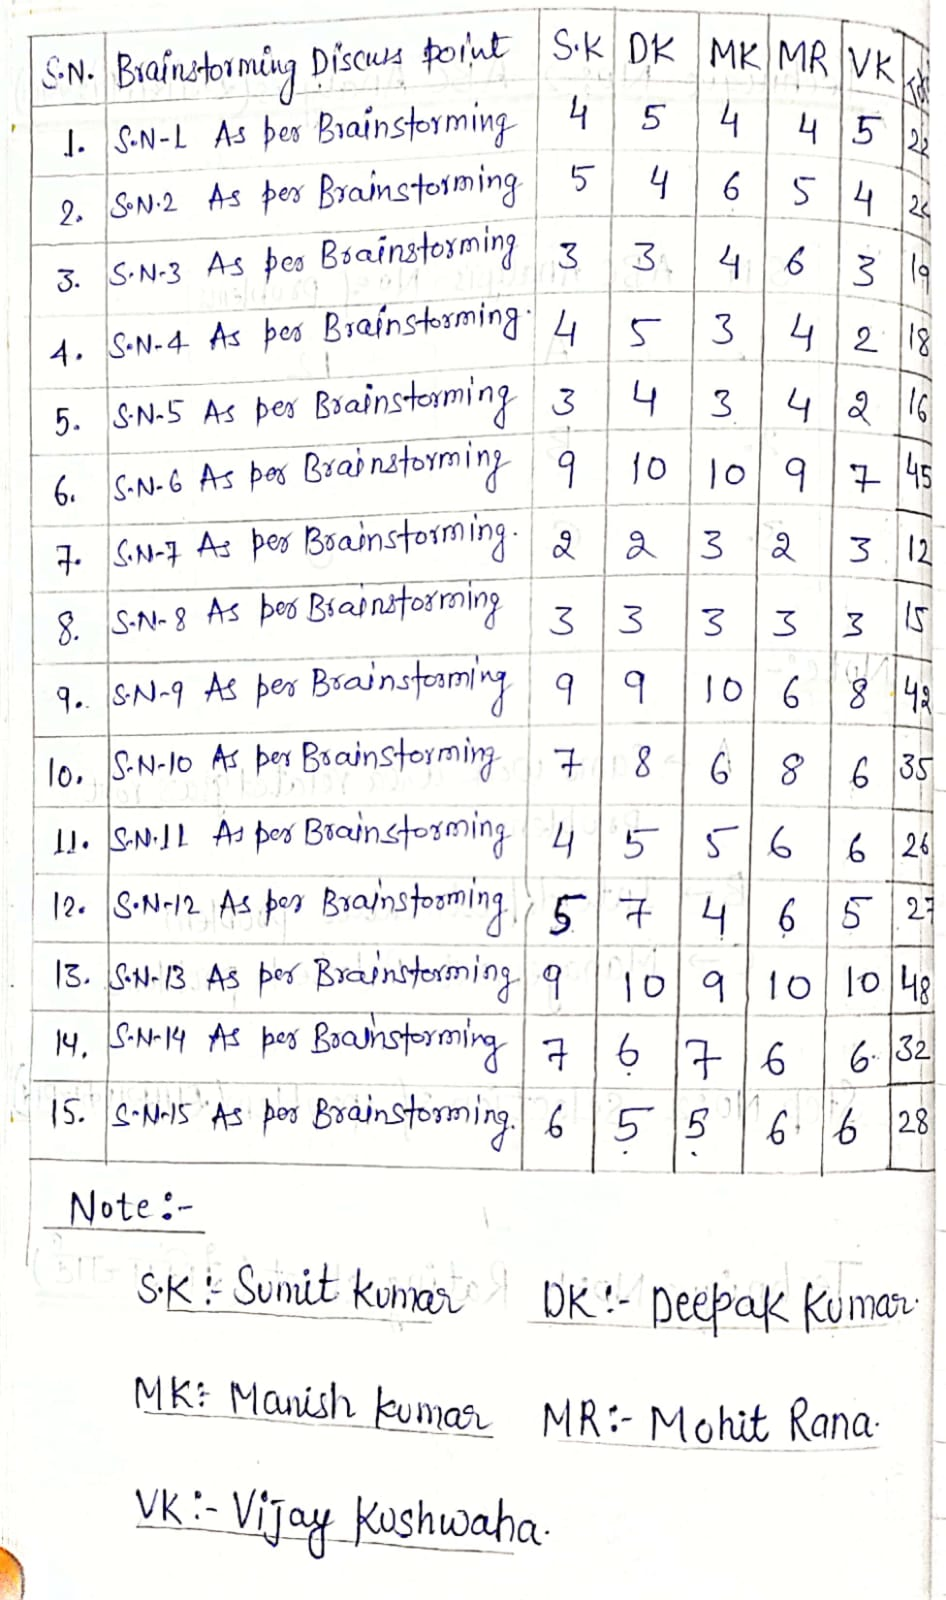 S.N. Brainstorming Discuss point S.K DK MK MR VK
1. S.N-1 As per Brainstorming 4 5 4 4 5 22
2. S.N.2 As per Brainstorming 5 4 6 5 4
3. S.N-3 As per Brainstorming 3 3 4 6 3 19
4. S.N-4 As per Brainstorming. 4 5 3 4 2 18
5. S.N-5 As per Brainstorming 3 4 3 4 2 16
6. S.N-6 As per Brainstorming 9 10 10 9 7 45
7. S.N-7 As per Brainstorming. 2 2 3 2 3 12
8. S.N-8 As per Brainstorming 3 3 3 3 3 15
9. S.N-9 As per Brainstorming 9 9 10 6 8 42
10. S.N-10 As per Brainstorming 7 8 6 8 6 35
11. S.N.11 As per Brainstorming 4 5 5 6 6 26
12. S.N-12 As per Brainstorming. 5 7 4 6 5 27
13. S.N-13 As per Brainstorming 9 10 9 10 10 48
14. S.N-14 As per Brainstorming 7 6 7 6 6. 32
15. S-N-15 As per Brainstorming. 6 5 5 6 6 28
Note :-
S.K :- Sumit kumar DK :- Deepak Kumar.
MK :- Manish kumar MR :- Mohit Rana.
VK :- Vijay Kushwaha.